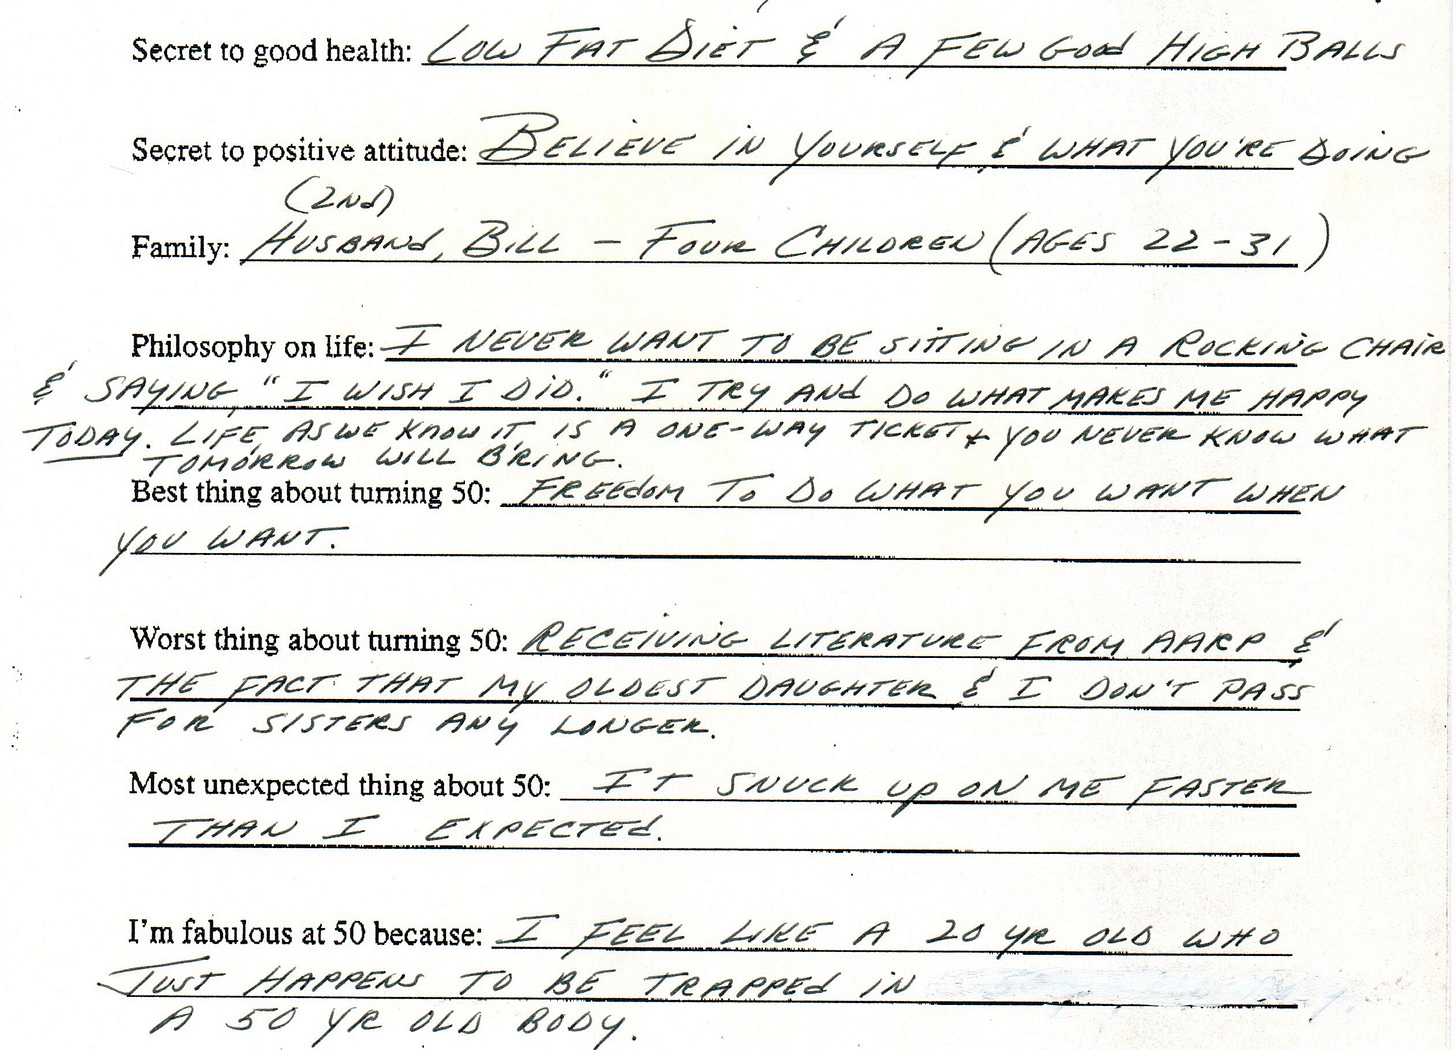 Secret to good health: LOW FAT DIET & A FEW GOOD HIGH BALLS
Secret to positive attitude: BELIEVE IN YOURSELF & WHAT YOU'RE DOING
(2ND)
Family: HUSBAND, BILL – FOUR CHILDREN (AGES 22-31)
Philosophy on life: I NEVER WANT TO BE SITTING IN A ROCKING CHAIR
& SAYING "I WISH I DID." I TRY AND DO WHAT MAKES ME HAPPY
TODAY. LIFE, AS WE KNOW IT, IS A ONE-WAY TICKET + YOU NEVER KNOW WHAT
TOMORROW WILL BRING.
Best thing about turning 50: FREEDOM TO DO WHAT YOU WANT WHEN
YOU WANT.
Worst thing about turning 50: RECEIVING LITERATURE FROM AARP &
THE FACT THAT MY OLDEST DAUGHTER & I DON'T PASS
FOR SISTERS ANY LONGER.
Most unexpected thing about 50: IT SNUCK UP ON ME FASTER
THAN I EXPECTED.
I'm fabulous at 50 because: I FEEL LIKE A 20 YR OLD WHO
JUST HAPPENS TO BE TRAPPED IN
A 50 YR OLD BODY.